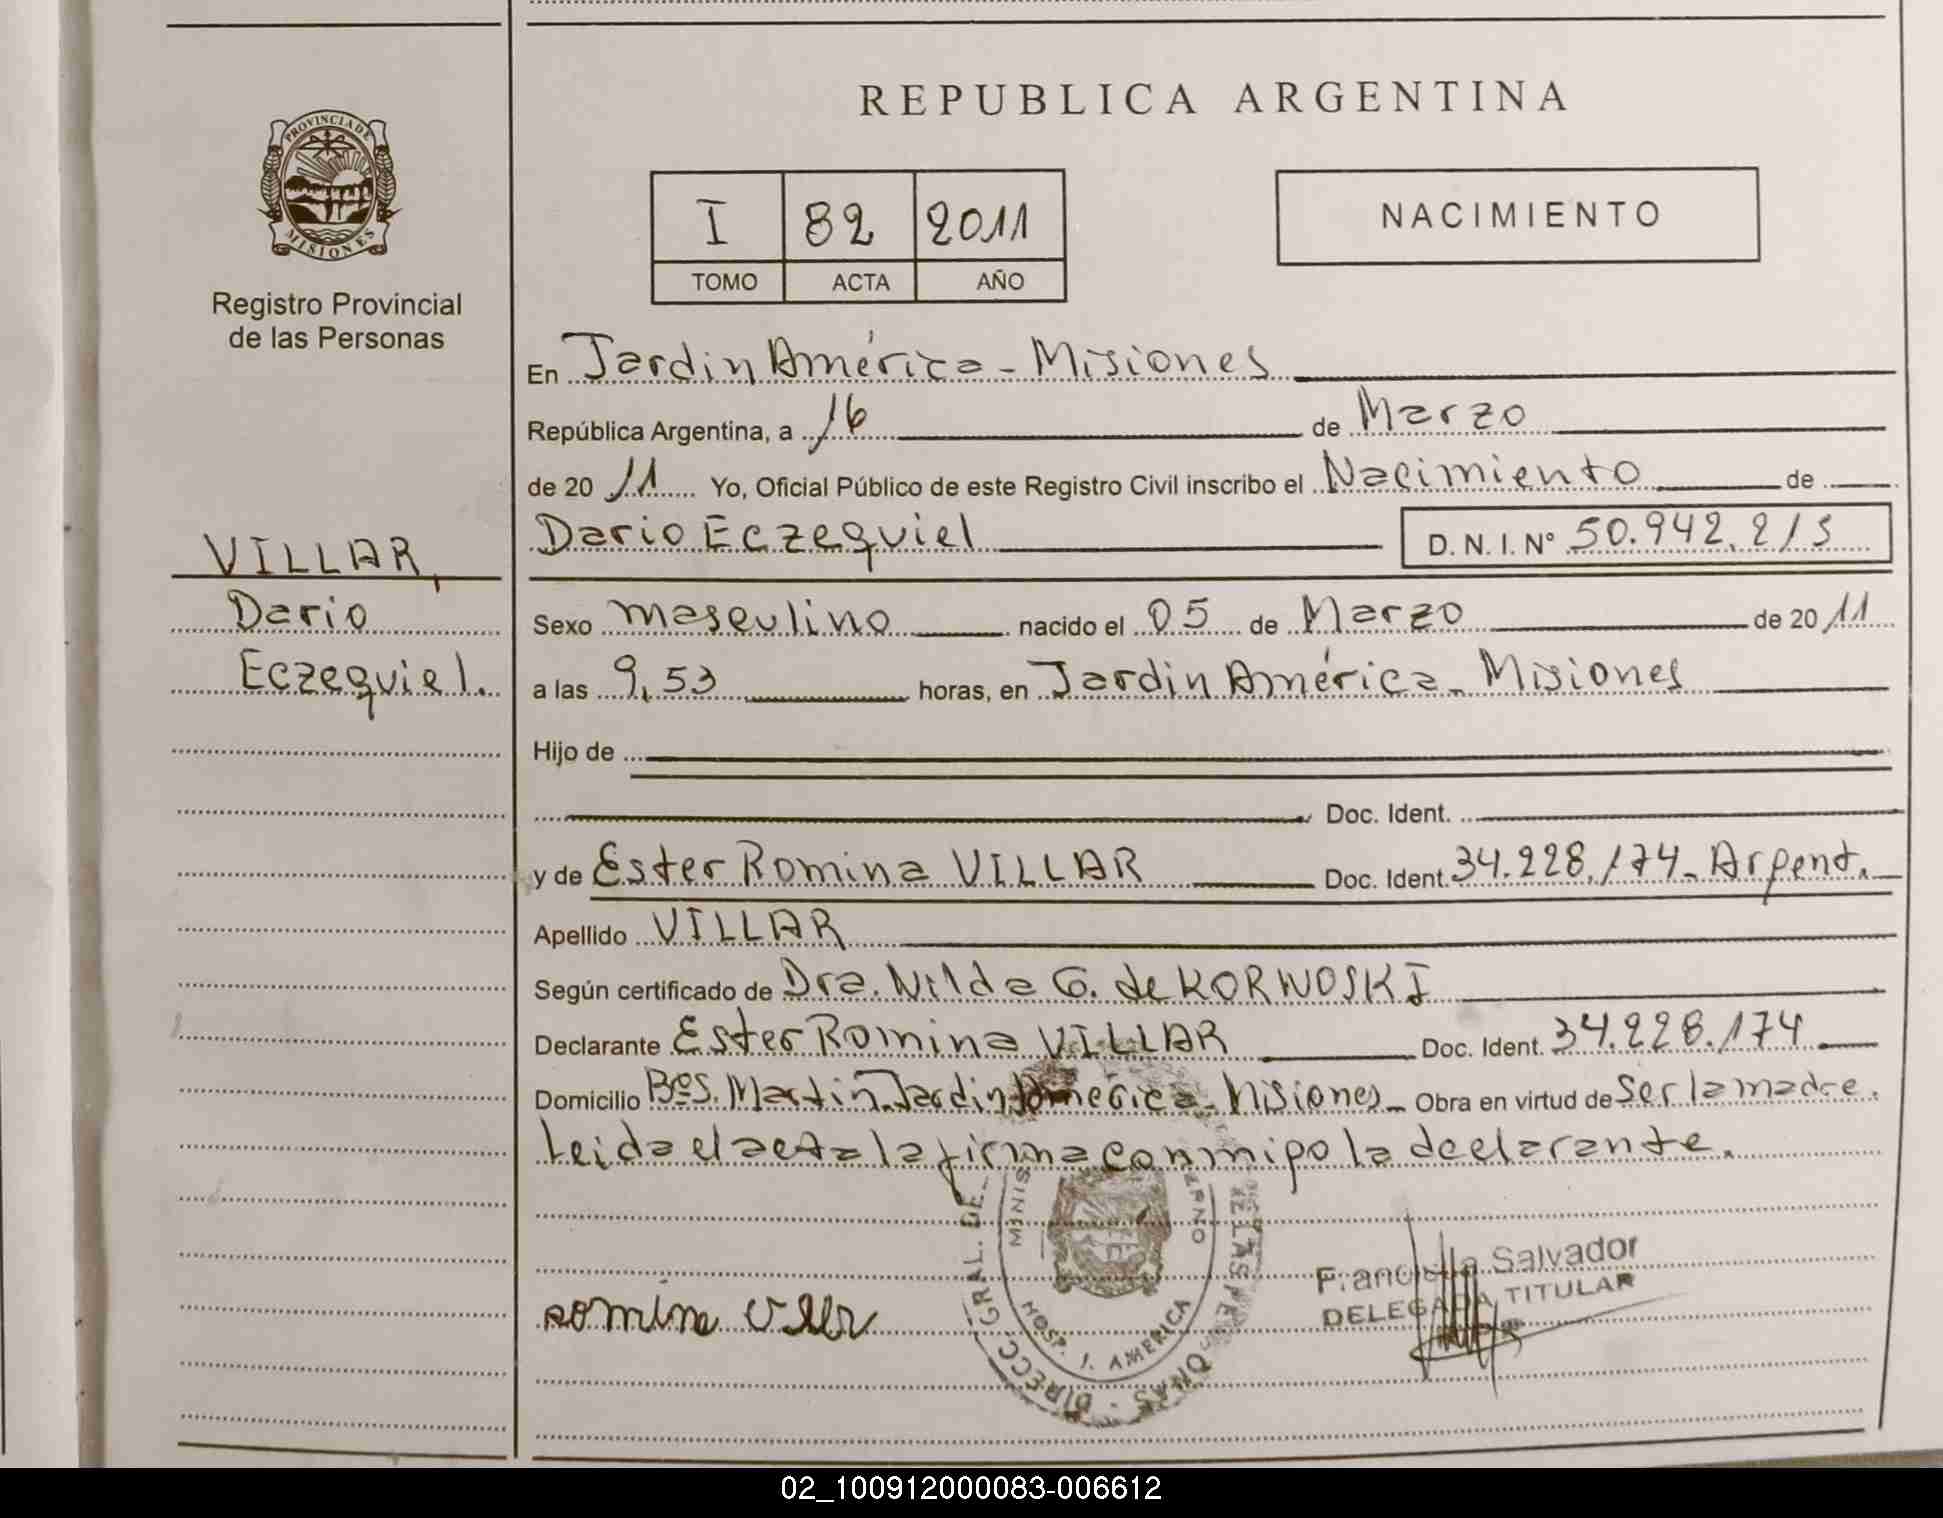 REPUBLICA ARGENTINA
PROVINCIA DE MISIONES
Registro Provincial
de las Personas
I 82 2011
TOMO ACTA AÑO
NACIMIENTO
En Jardin América - Misiones
República Argentina, a 16 de Marzo
de 20 11 Yo, Oficial Público de este Registro Civil inscribo el Nacimiento de
Dario Eczequiel D. N. I. Nº 50.942.215
VILLAR,
Dario
Eczequiel.
Sexo masculino nacido el 05 de Marzo de 20 11
a las 9,53 horas, en Jardin América - Misiones
Hijo de
Doc. Ident.
y de Ester Romina VILLAR Doc. Ident. 34.228.174 - Argent.
Apellido VILLAR
Según certificado de Dra. Nilda G. de KORNOSKI
Declarante Ester Romina VILLAR Doc. Ident. 34.228.174
Domicilio Bº S. Martin Jardin América - Misiones - Obra en virtud de Ser la madre.
Leida el acta la firma conmigo la declarante.
DIRECC. GRAL. DE LAS PERSONAS
MINIS
HOSP. J. AMERICA
romina Villar
Salvador
DELEGADA TITULAR
02_100912000083-006612